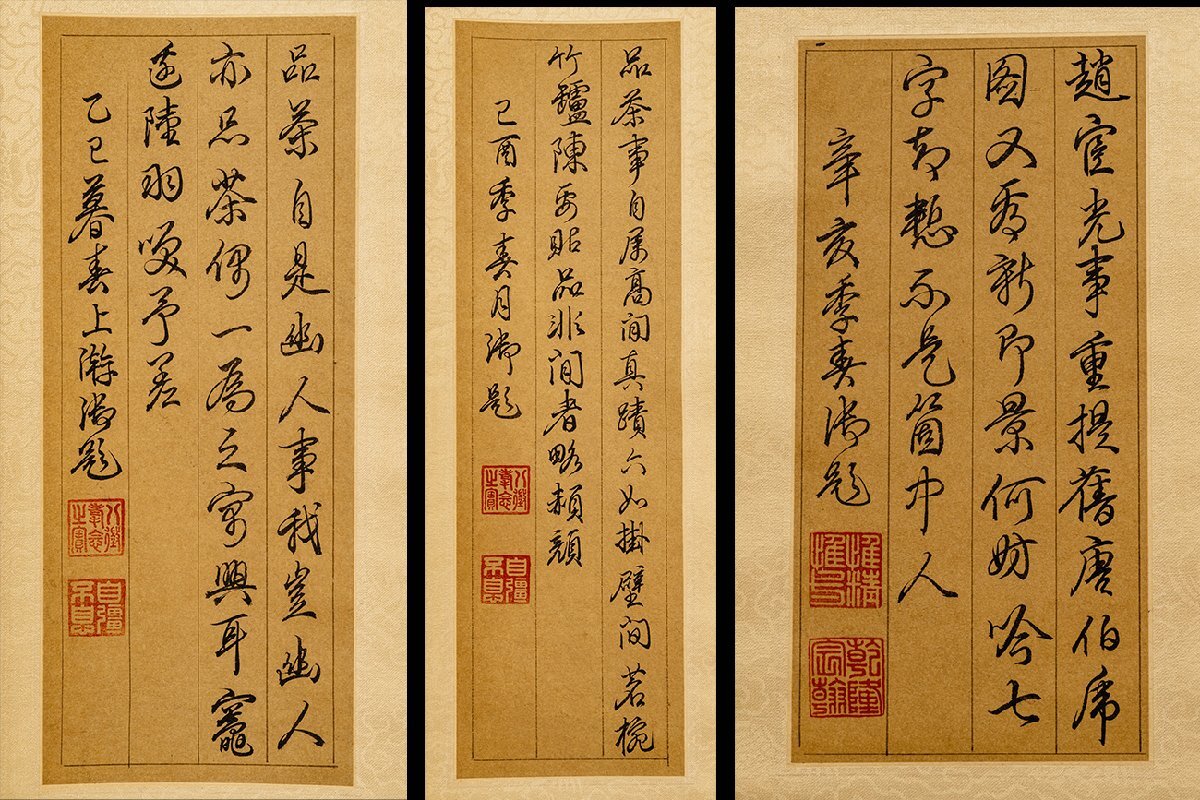 品茶自是幽人事我豈幽人
亦品茶偶一為之寓興耳竈
邊陸羽笑予差
乙巳暮春上澣御題
八徵耄念之寶
自彊不息
品茶事自属高閒真蹟六如掛壁間茗椀
竹鑪陳要貼品非閒者略赬顔
己酉季春月御題
八徵耄念之寶
自彊不息
趙宦光事重提舊唐伯虎
圖又爲新即景何妨吟七
字却慙不是箇中人
辛亥季春御題
惟精惟一
乾隆宸翰